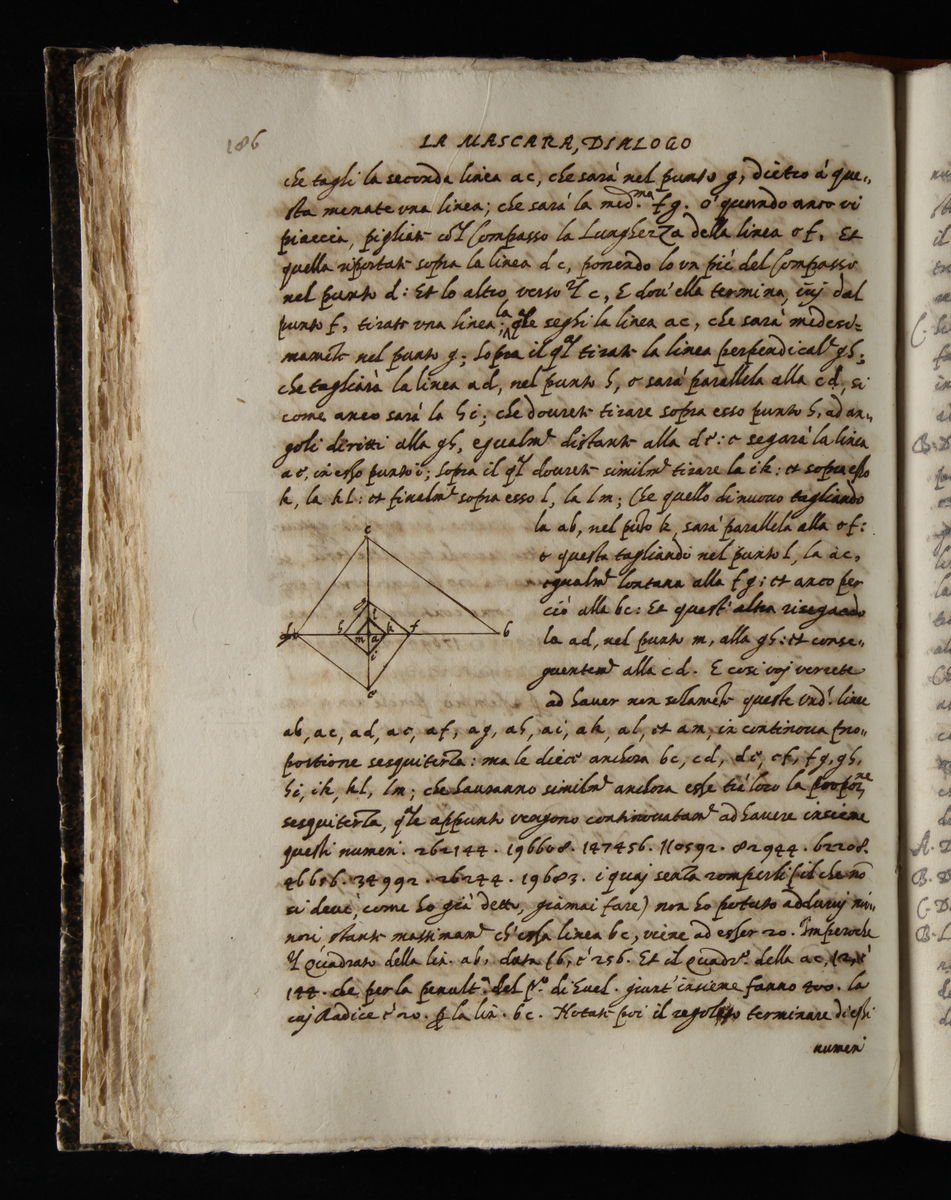 186
LA MASCARA, DIALOGO
che tagli la seconda linea ac, che sarà nel punto g, dietro à que-
sta menate una linea; che sarà la med.ma fg. ò quando anco vi
piaccia, pigliate col Compasso la Lunghezza della linea ef. Et
quella riportate sopra la linea dc, ponendo lo un piè del Compasso
nel punto d: Et lo altro verso il c, E dov'ella termina, ivi dal
punto f, tirate una linea; la qle seghi la linea ac, che sarà medesi-
mamēte nel punto g; sopra il ql tirate la linea perpendicale gh;
che tagliarà la linea ad, nel punto h, e sarà parallela alla cd, si
come anco sarà la hi; che dovrete tirare sopra esso punto h, ad an-
goli diritti alla gh, egualmte distante alla de: e segarà la linea
ae, in esso punto i; sopra il ql dovrete similmte tirare la ik: et sopra esso
k, la kl: et finalmte sopra esso l, la lm; Che quello di nuovo tagliando
la ab, nel pūto k, sarà parallela alla ef:
e questa tagliando nel punto l, la ac,
egualmte lontana alla fg; et anco per
ciò alla bc: Et quest' altra risegando
la ad, nel punto m, alla gh: et conse-
guentemte alla cd. E cosi voi verrete
ad haver non solamēte queste und.i linee
c
g
l
d h m a k f b
i
e
ab, ac, ad, ae, af, ag, ah, ai, ak, al, et am, in continova pro-
portione sesquiterza: ma le diece anchora bc, cd, de, ef, fg, gh,
hi, ik, kl, lm; che havranno similmte anchora esse trà loro la propor.ne
sesquiterza, qle appunto vengono continovatamte ad havere insieme
questi numeri. 262144. 196608. 147456. 110592. 82944. 62208.
46656. 34992. 26244. 19683. i quai senza romperli (il che nō
si deve, come ho già detto, giamai fare) non ho potuto addurvij mi-
nori stante massimamte ch'essa linea bc, viene ad esser 20. Imperoche
il Quadrato della lin. ab, data 16, è 256. Et il Quadr.o della ac, 12, è
144. che per la penult.a del p.o di Eucl. giunt' insieme fanno 400. la
cui Radice è 20. p la lin. bc. Notate poi il terminare di essi
numeri